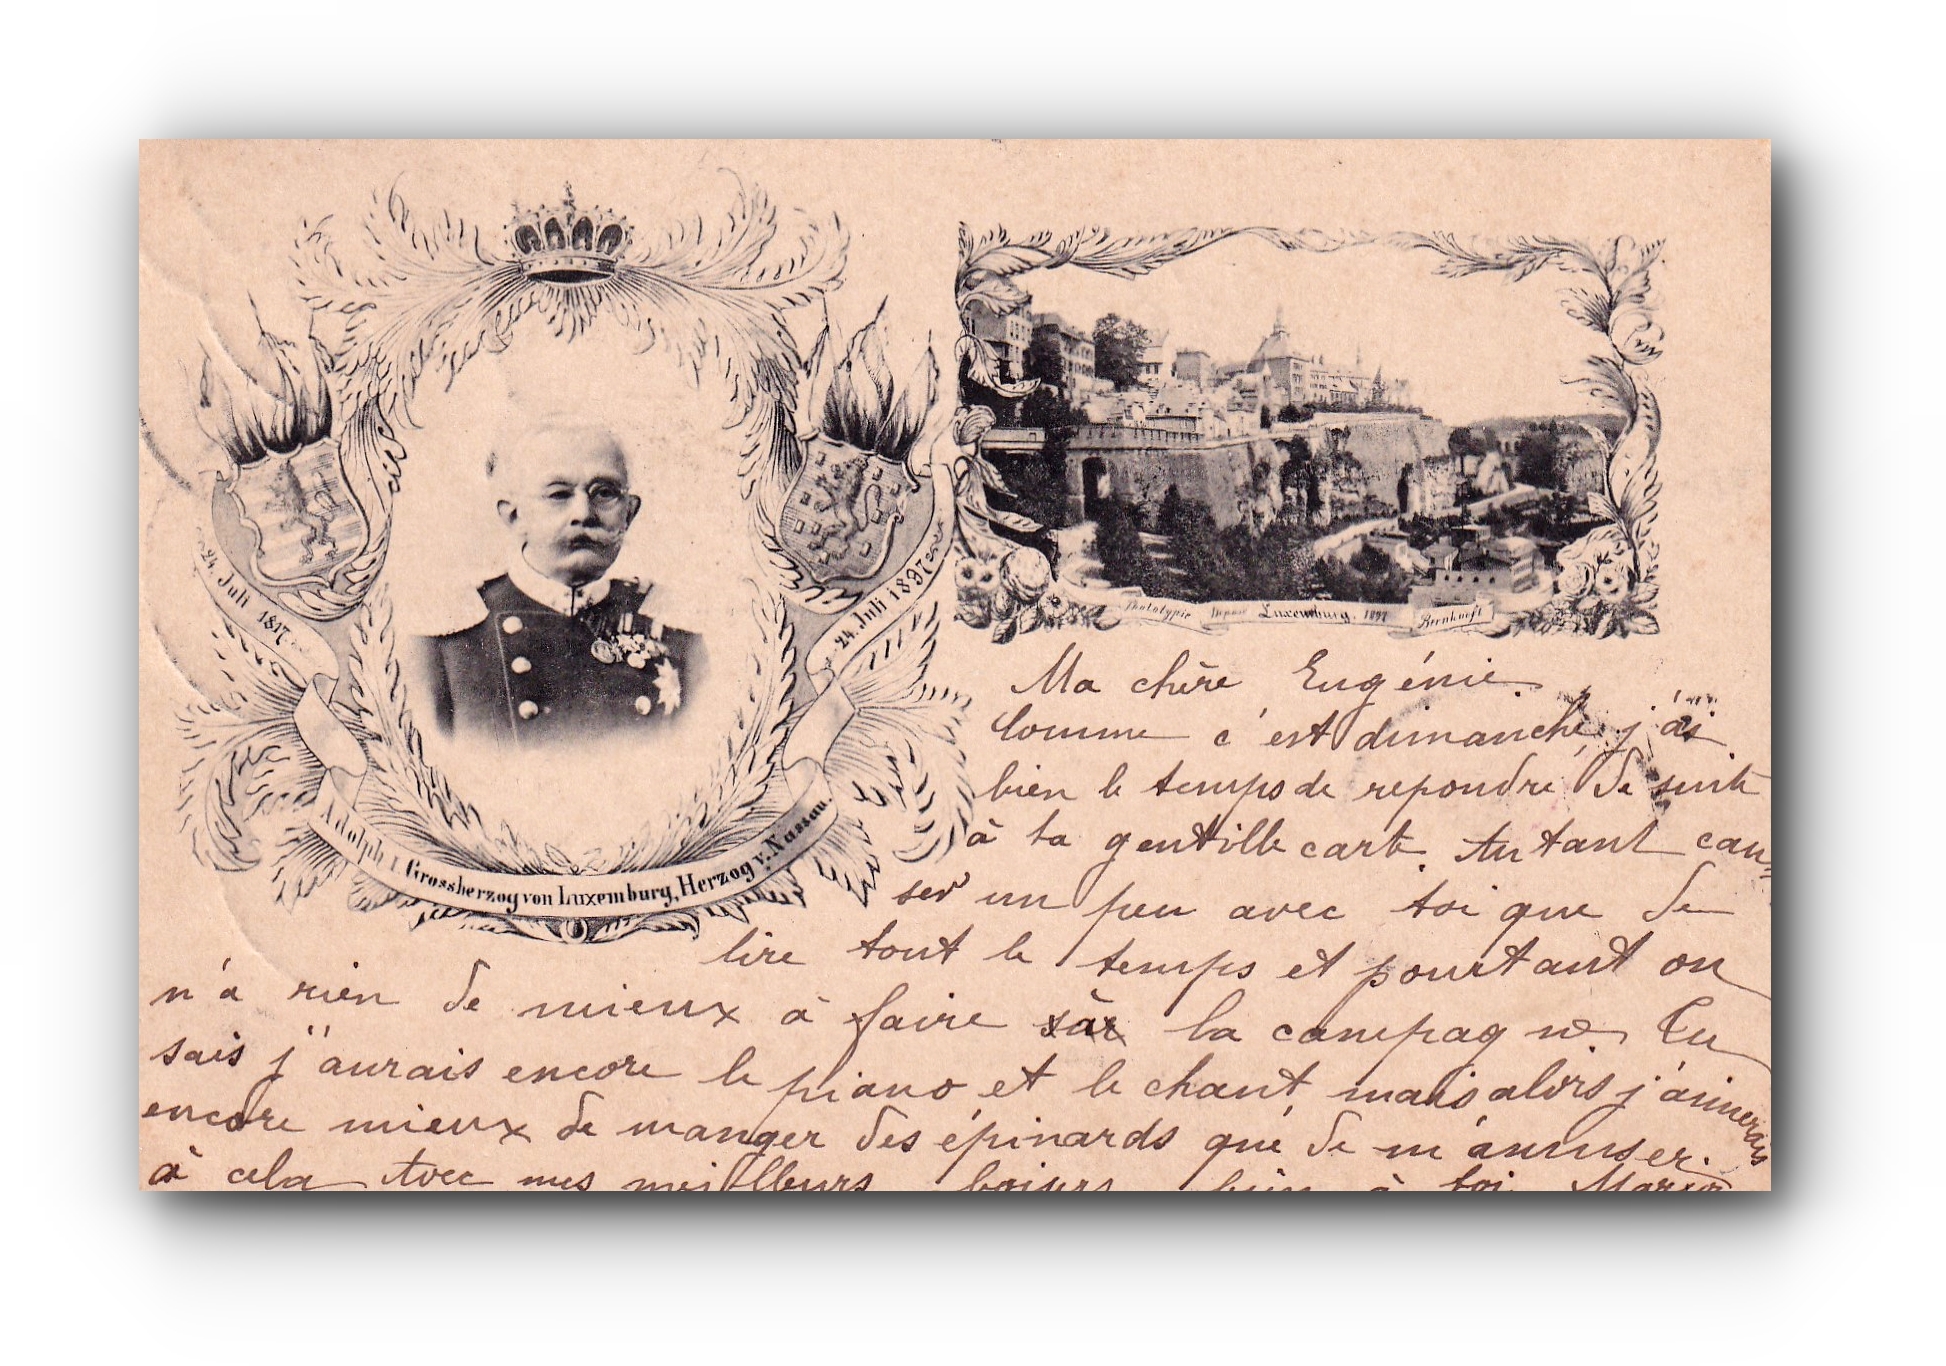 24. Juli 1817.
24. Juli 1897.
Adolph I Grossherzog von Luxemburg, Herzog v. Nassau.
Phototypie Luxemburg. 1897 Bernhoeft
Ma chère Eugénie.
Comme c'est dimanche, j'ai
bien le temps de repondre de suite
à ta gentille carte. Autant cau-
ser un peu avec toi que de
lire tout le temps et pourtant on
n'a rien de mieux à faire à la campagne. Tu
sais j'aurais encore le piano et le chant mais alors j'aimerais
encore mieux de manger des épinards que de m'amuser
à cela Avec mes meilleurs baisers bien à toi Maria